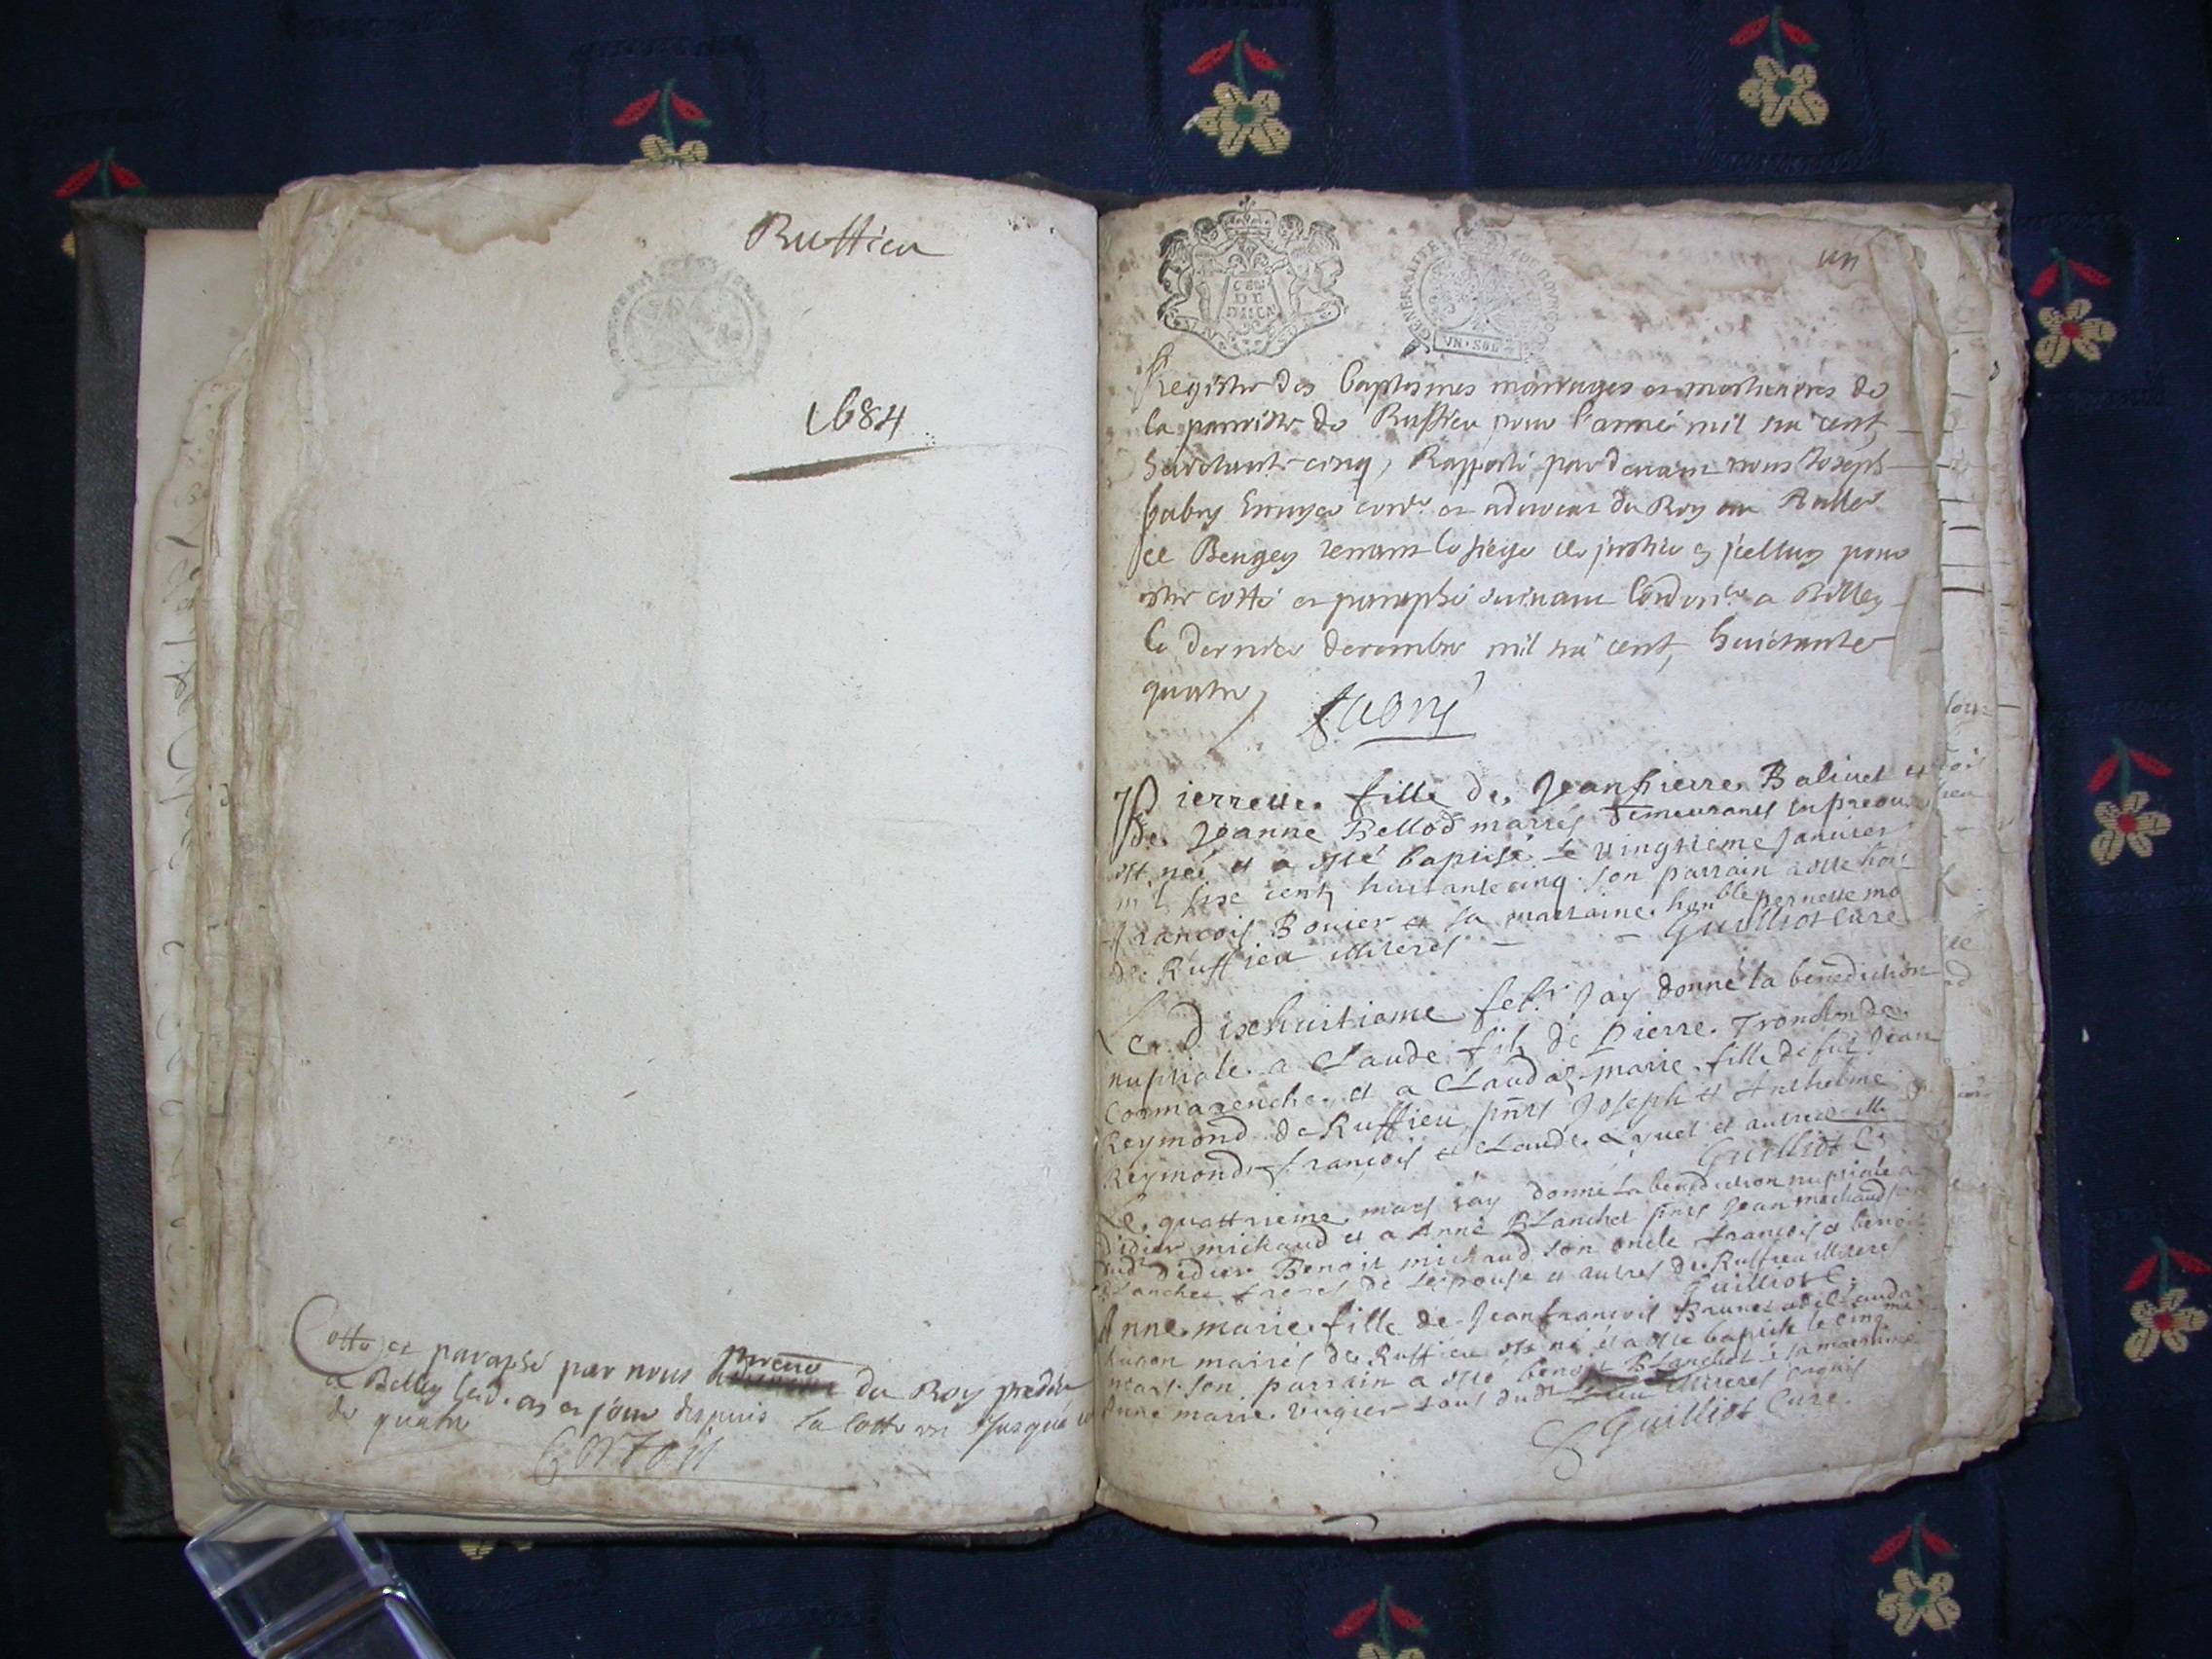 Ruffieu
1684
Cotté et paraphé par nous du Roy
a Belley led. an et jour depuis la cotte un jusqua
de quatre
un
GENERALITE DE BOURGOGNE
UN · SOL
Registre des baptesmes mariages et mortuaires de
la parroisse de Ruffieu pour l'année mil six cent
huictante cinq, Rapporté pardevant nous Joseph
Fabry Escuyer cons.r et advocat du Roy au
de Beugey tenant le siege de justice pour
estre cotté et paraphé suivant l'ordon.ce a Belley
le dernier decembre mil six cent, huictante
quatre
Fabry
Pierrette fille de Jeanpierre Balivet et
de Jeanne Bellod mariés demeurants
est née et a esté baptisé le vingtieme Janvier
mil sixe cent huitante cinq son parrain a esté
francois Bouier et sa marraine honble pernette
de Ruffieu illiterés - - Guilliot Curé
Le Dixhuitieme feb.r Jay donné la benediction
nuptiale a Claude fils de Pierre Tronchon de
Cormarenche et a Claudaz marie fille de fut Jean
Reymond de Ruffieu pnts Joseph et Anthelme
Reymond francois et Claude et autres ill
Guilliot C.
Le quattrieme mars jay donné la benediction nuptiale a
didier michaud et a Anne Blanchet pnts Jean michaud
dud didier Benoit michaud son oncle francois et benoit
Blanchet freres de lepouse et autres de Ruffieu illiteres
Guilliot C.
Anne marie fille de Jeanfrancois Brunet et de Clauda
hugon mariés de Ruffieu est né et a esté baptisé le cinq.me
mars son parrain a esté benoit Blanchet et sa marraine
Anne marie vugier tous dud illiteres requis
Guilliot Curé.